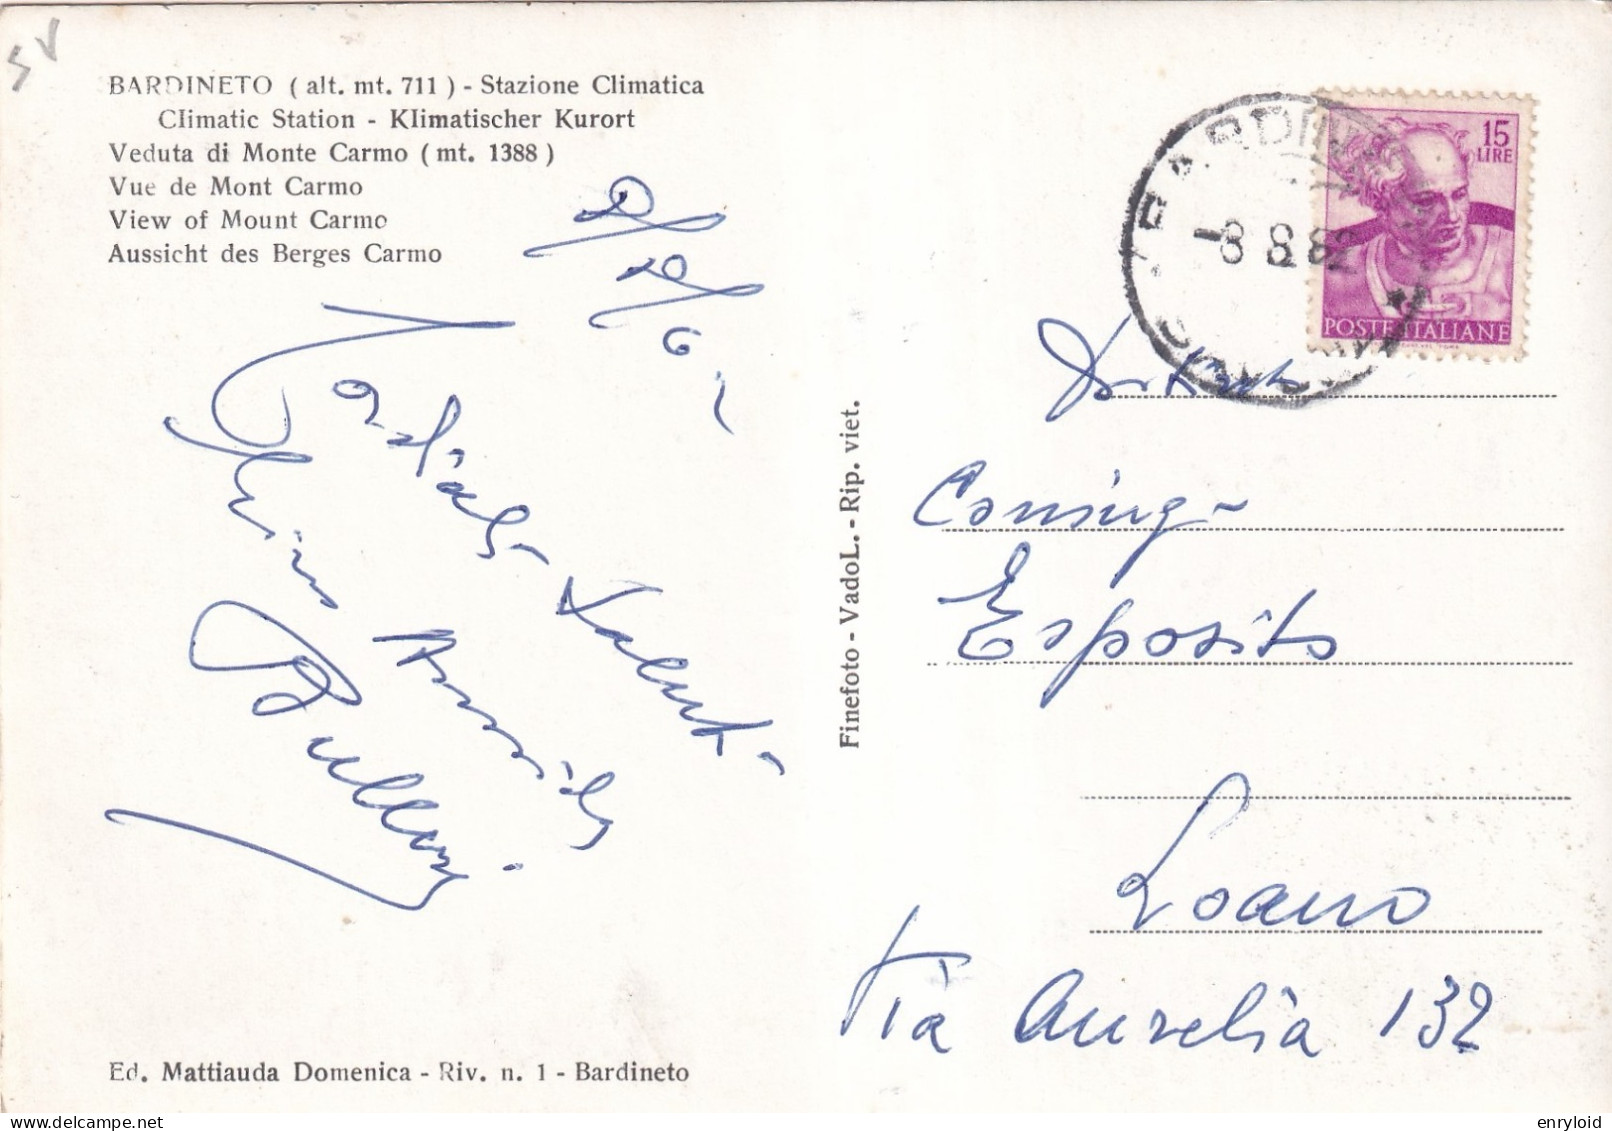 SV
BARDINETO ( alt. mt. 711 ) - Stazione Climatica
Climatic Station - Klimatischer Kurort
Veduta di Monte Carmo ( mt. 1388 )
Vue de Mont Carmo
View of Mount Carmo
Aussicht des Berges Carmo
8/8/62
Cordiali Saluti
Bulloni
Ed. Mattiauda Domenica - Riv. n. 1 - Bardineto
Finefoto - Vado L. - Rip. viet.
BARDINETO
-8 8.62
SAVONA
15
LIRE
POSTE ITALIANE
Esposito
Loano
Via Aurelia 132
enryloid